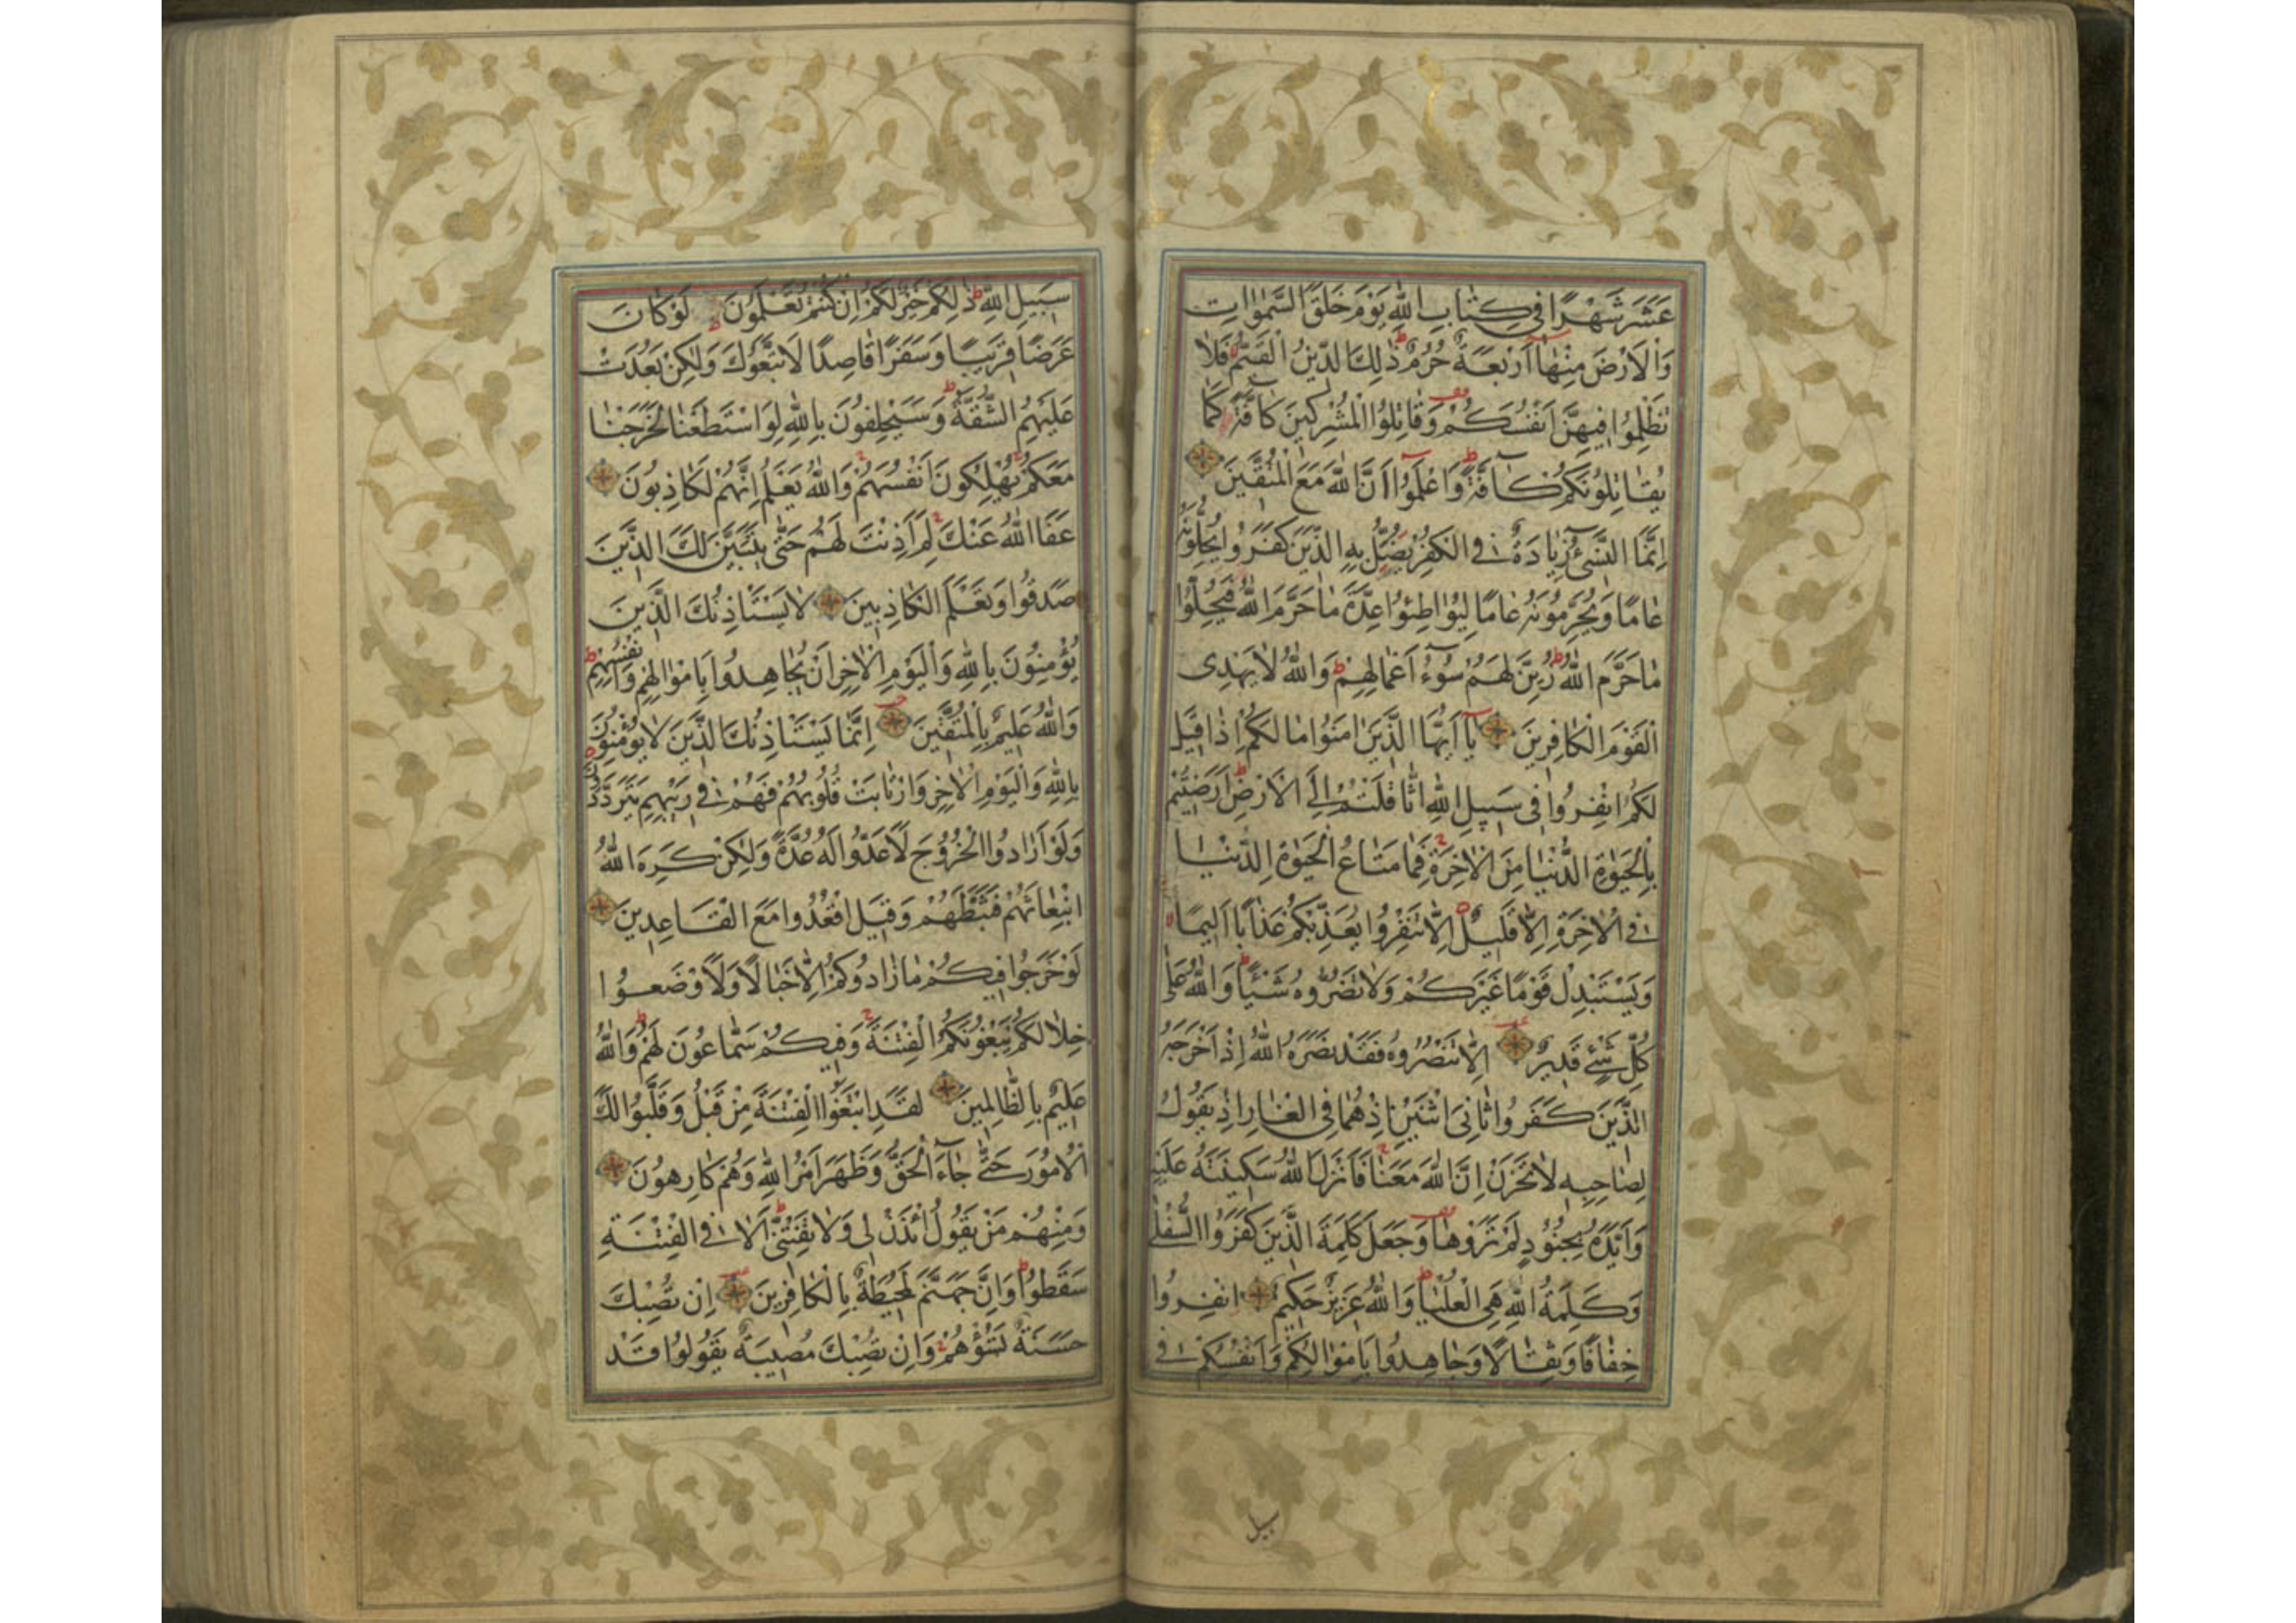 عَشَرَ شَهْرًا فِي كِتَابِ اللّٰهِ يَوْمَ خَلَقَ السَّمٰوَاتِ
وَالْاَرْضَ مِنْهَا اَرْبَعَةٌ حُرُمٌ ذٰلِكَ الدِّينُ الْقَيِّمُ فَلَا
تَظْلِمُوا فِيهِنَّ اَنْفُسَكُمْ وَقَاتِلُوا الْمُشْرِكِينَ كَافَّةً كَمَا
يُقَاتِلُونَكُمْ كَافَّةً وَاعْلَمُوا اَنَّ اللّٰهَ مَعَ الْمُتَّقِينَ
اِنَّمَا النَّسِيءُ زِيَادَةٌ فِي الْكُفْرِ يُضَلُّ بِهِ الَّذِينَ كَفَرُوا يُحِلُّونَهُ
عَامًا وَيُحَرِّمُونَهُ عَامًا لِيُوَاطِئُوا عِدَّةَ مَا حَرَّمَ اللّٰهُ فَيُحِلُّوا
مَا حَرَّمَ اللّٰهُ زُيِّنَ لَهُمْ سُوءُ اَعْمَالِهِمْ وَاللّٰهُ لَا يَهْدِى
الْقَوْمَ الْكَافِرِينَ يَا اَيُّهَا الَّذِينَ اٰمَنُوا مَا لَكُمْ اِذَا قِيلَ
لَكُمُ انْفِرُوا فِى سَبِيلِ اللّٰهِ اثَّاقَلْتُمْ اِلَى الْاَرْضِ اَرَضِيتُمْ
بِالْحَيٰوةِ الدُّنْيَا مِنَ الْاٰخِرَةِ فَمَا مَتَاعُ الْحَيٰوةِ الدُّنْيَا
فِي الْاٰخِرَةِ اِلَّا قَلِيلٌ اِلَّا تَنْفِرُوا يُعَذِّبْكُمْ عَذَابًا اَلِيمًا
وَيَسْتَبْدِلْ قَوْمًا غَيْرَكُمْ وَلَا تَضُرُّوهُ شَيْئًا وَاللّٰهُ عَلٰى
كُلِّ شَيْءٍ قَدِيرٌ اِلَّا تَنْصُرُوهُ فَقَدْ نَصَرَهُ اللّٰهُ اِذْ اَخْرَجَهُ
الَّذِينَ كَفَرُوا ثَانِىَ اثْنَيْنِ اِذْ هُمَا فِي الْغَارِ اِذْ يَقُولُ
لِصَاحِبِهِ لَا تَحْزَنْ اِنَّ اللّٰهَ مَعَنَا فَاَنْزَلَ اللّٰهُ سَكِينَتَهُ عَلَيْهِ
وَاَيَّدَهُ بِجُنُودٍ لَمْ تَرَوْهَا وَجَعَلَ كَلِمَةَ الَّذِينَ كَفَرُوا السُّفْلٰى
وَكَلِمَةُ اللّٰهِ هِيَ الْعُلْيَا وَاللّٰهُ عَزِيزٌ حَكِيمٌ انْفِرُوا
خِفَافًا وَثِقَالًا وَجَاهِدُوا بِاَمْوَالِكُمْ وَاَنْفُسِكُمْ فِي
سبيل
سَبِيلِ اللّٰهِ ذٰلِكُمْ خَيْرٌ لَكُمْ اِنْ كُنْتُمْ تَعْلَمُونَ لَوْ كَانَ
عَرَضًا قَرِيبًا وَسَفَرًا قَاصِدًا لَاتَّبَعُوكَ وَلٰكِنْ بَعُدَتْ
عَلَيْهِمُ الشُّقَّةُ وَسَيَحْلِفُونَ بِاللّٰهِ لَوِ اسْتَطَعْنَا لَخَرَجْنَا
مَعَكُمْ يُهْلِكُونَ اَنْفُسَهُمْ وَاللّٰهُ يَعْلَمُ اِنَّهُمْ لَكَاذِبُونَ
عَفَا اللّٰهُ عَنْكَ لِمَ اَذِنْتَ لَهُمْ حَتّٰى يَتَبَيَّنَ لَكَ الَّذِينَ
صَدَقُوا وَتَعْلَمَ الْكَاذِبِينَ لَا يَسْتَاْذِنُكَ الَّذِينَ
يُؤْمِنُونَ بِاللّٰهِ وَالْيَوْمِ الْاٰخِرِ اَنْ يُجَاهِدُوا بِاَمْوَالِهِمْ وَاَنْفُسِهِمْ
وَاللّٰهُ عَلِيمٌ بِالْمُتَّقِينَ اِنَّمَا يَسْتَاْذِنُكَ الَّذِينَ لَا يُؤْمِنُونَ
بِاللّٰهِ وَالْيَوْمِ الْاٰخِرِ وَارْتَابَتْ قُلُوبُهُمْ فَهُمْ فِي رَيْبِهِمْ يَتَرَدَّدُونَ
وَلَوْ اَرَادُوا الْخُرُوجَ لَاَعَدُّوا لَهُ عُدَّةً وَلٰكِنْ كَرِهَ اللّٰهُ
انْبِعَاثَهُمْ فَثَبَّطَهُمْ وَقِيلَ اقْعُدُوا مَعَ الْقَاعِدِينَ
لَوْ خَرَجُوا فِيكُمْ مَا زَادُوكُمْ اِلَّا خَبَالًا وَلَاَوْضَعُوا
خِلَالَكُمْ يَبْغُونَكُمُ الْفِتْنَةَ وَفِيكُمْ سَمَّاعُونَ لَهُمْ وَاللّٰهُ
عَلِيمٌ بِالظَّالِمِينَ لَقَدِ ابْتَغَوُا الْفِتْنَةَ مِنْ قَبْلُ وَقَلَّبُوا لَكَ
الْاُمُورَ حَتّٰى جَاءَ الْحَقُّ وَظَهَرَ اَمْرُ اللّٰهِ وَهُمْ كَارِهُونَ
وَمِنْهُمْ مَنْ يَقُولُ ائْذَنْ لِى وَلَا تَفْتِنِّى اَلَا فِي الْفِتْنَةِ
سَقَطُوا وَاِنَّ جَهَنَّمَ لَمُحِيطَةٌ بِالْكَافِرِينَ اِنْ تُصِبْكَ
حَسَنَةٌ تَسُؤْهُمْ وَاِنْ تُصِبْكَ مُصِيبَةٌ يَقُولُوا قَدْ